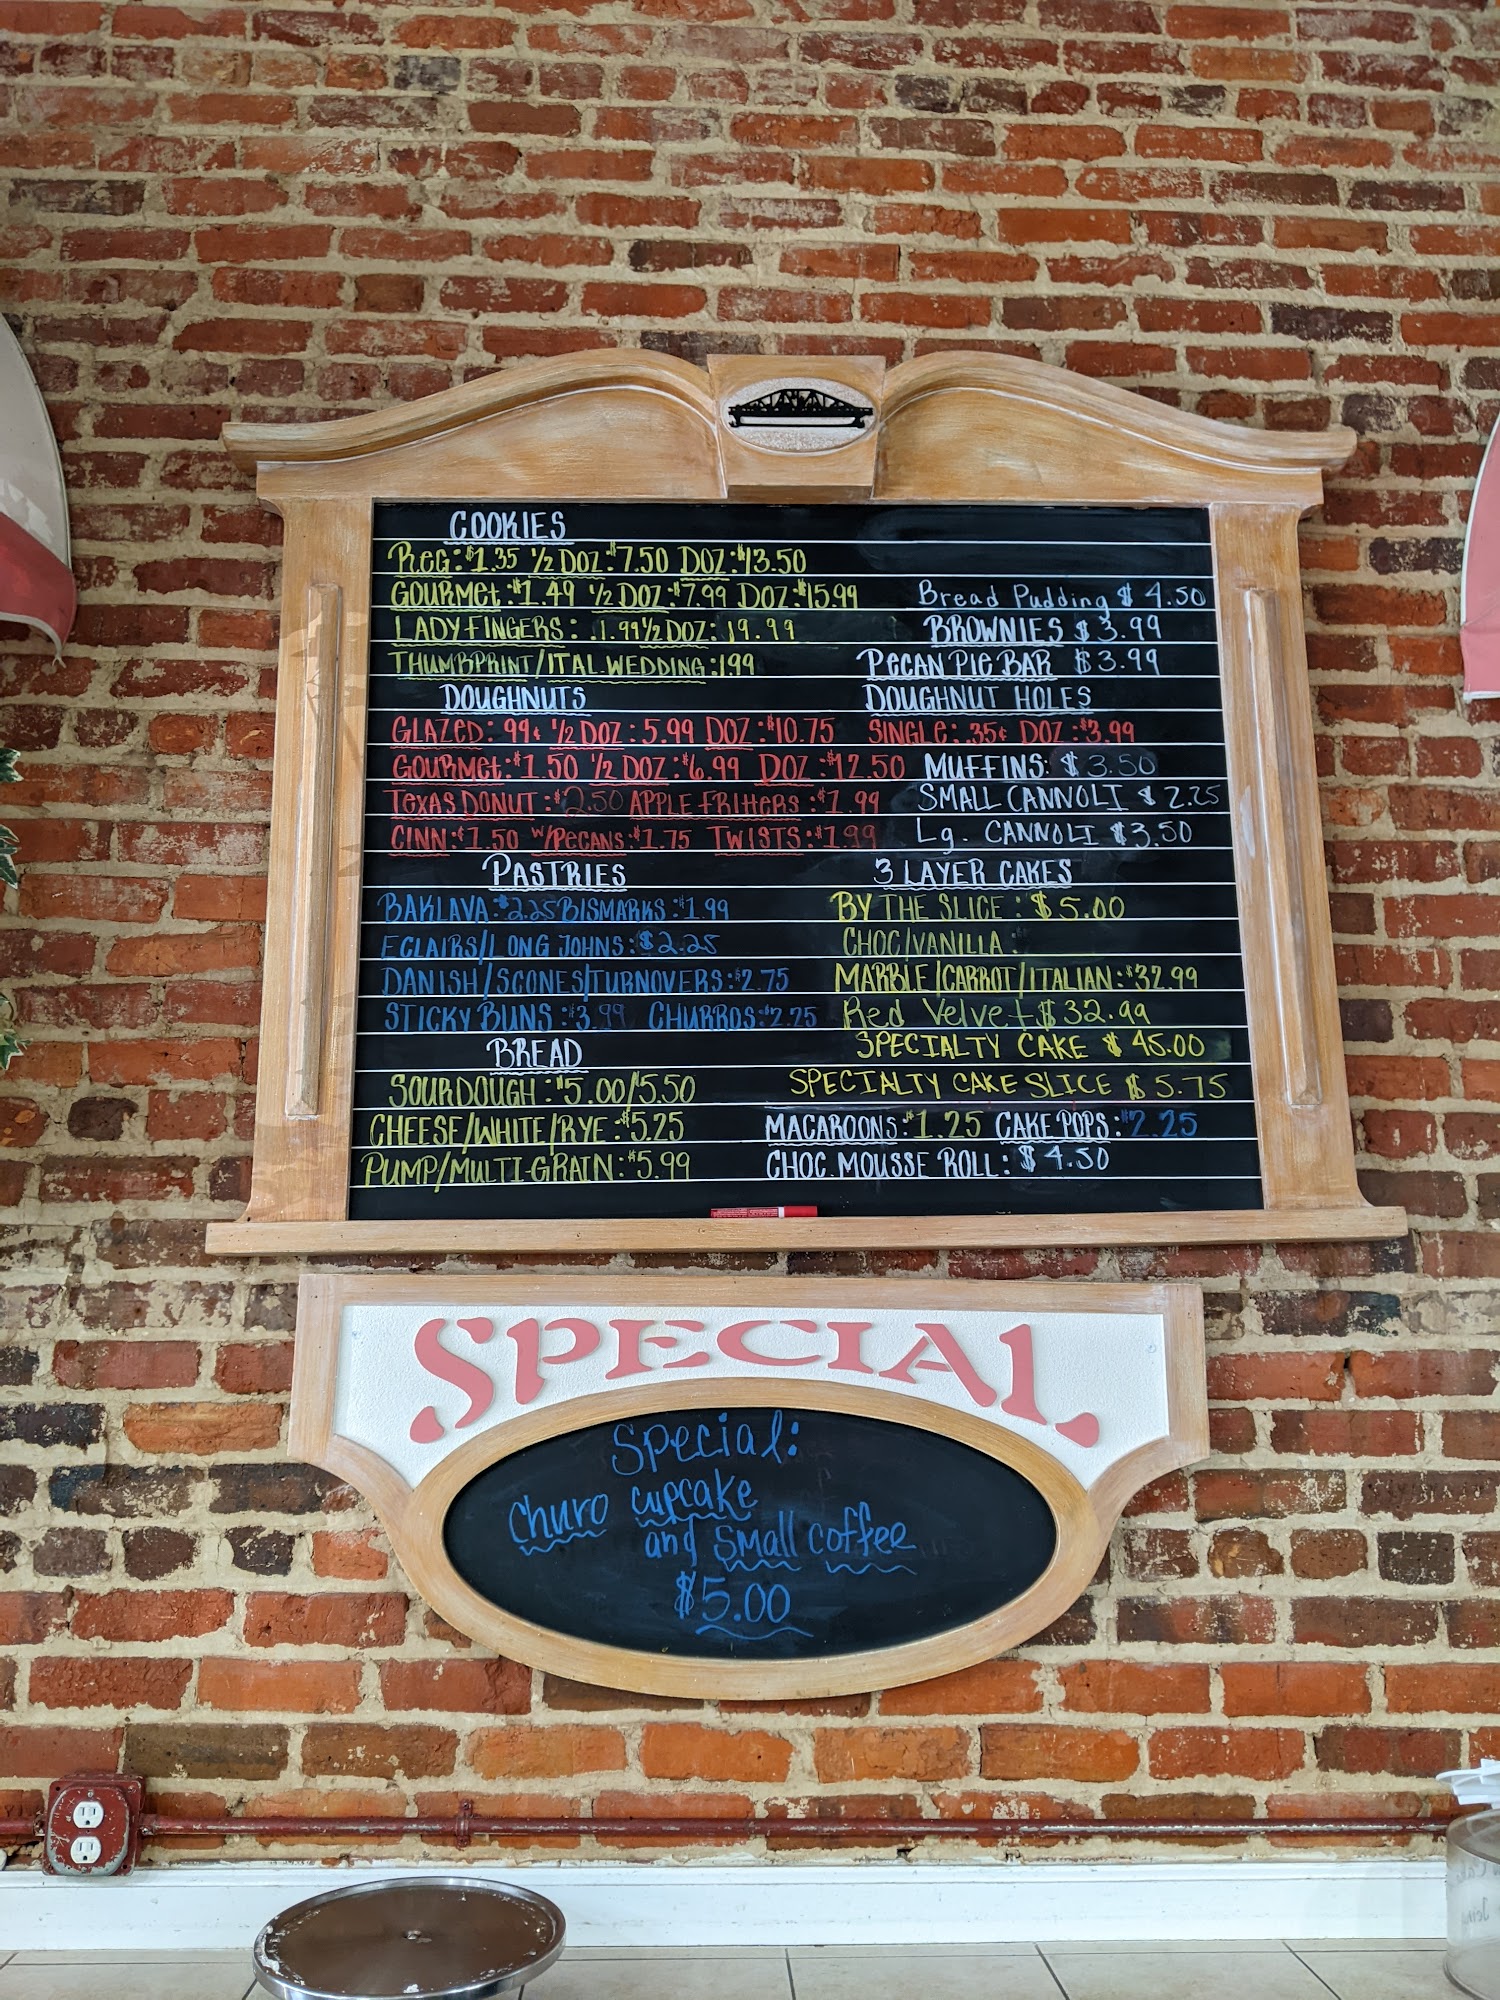 COOKIES
REG: $1.35 ½ DOZ: $7.50 DOZ: $13.50
GOURMET: $1.49 ½ DOZ: $7.99 DOZ: $15.99
LADYFINGERS: .1.99 ½ DOZ: 19.99
THUMBPRINT/ITAL.WEDDING: 1.99
DOUGHNUTS
GLAZED: 99¢ ½ DOZ: 5.99 DOZ: $10.75
GOURMET: $1.50 ½ DOZ: $6.99 DOZ: $12.50
TEXAS DONUT: $2.50 APPLE FRITTERS: $1.99
CINN: $1.50 W/PECANS: $1.75 TWISTS: $1.99
PASTRIES
BAKLAVA: $2.25 BISMARKS: $1.99
ECLAIRS/LONG JOHNS: $2.25
DANISH/SCONES/TURNOVERS: $2.75
STICKY BUNS: $3.99 CHURROS: $2.25
BREAD
SOURDOUGH: $5.00/5.50
CHEESE/WHITE/RYE: $5.25
PUMP/MULTI-GRAIN: $5.99
Bread Pudding $4.50
BROWNIES $3.99
PECAN PIE BAR $3.99
DOUGHNUT HOLES
SINGLE: .35¢ DOZ: $3.99
MUFFINS: $3.50
SMALL CANNOLI $2.25
Lg. CANNOLI $3.50
3 LAYER CAKES
BY THE SLICE: $5.00
CHOC/VANILLA:
MARBLE/CARROT/ITALIAN: $32.99
Red Velvet $32.99
SPECIALTY CAKE $45.00
SPECIALTY CAKE SLICE $5.75
MACAROONS: $1.25 CAKE POPS: $2.25
CHOC. MOUSSE ROLL: $4.50
SPECIAL
Special:
Churo cupcake
and small coffee
$5.00